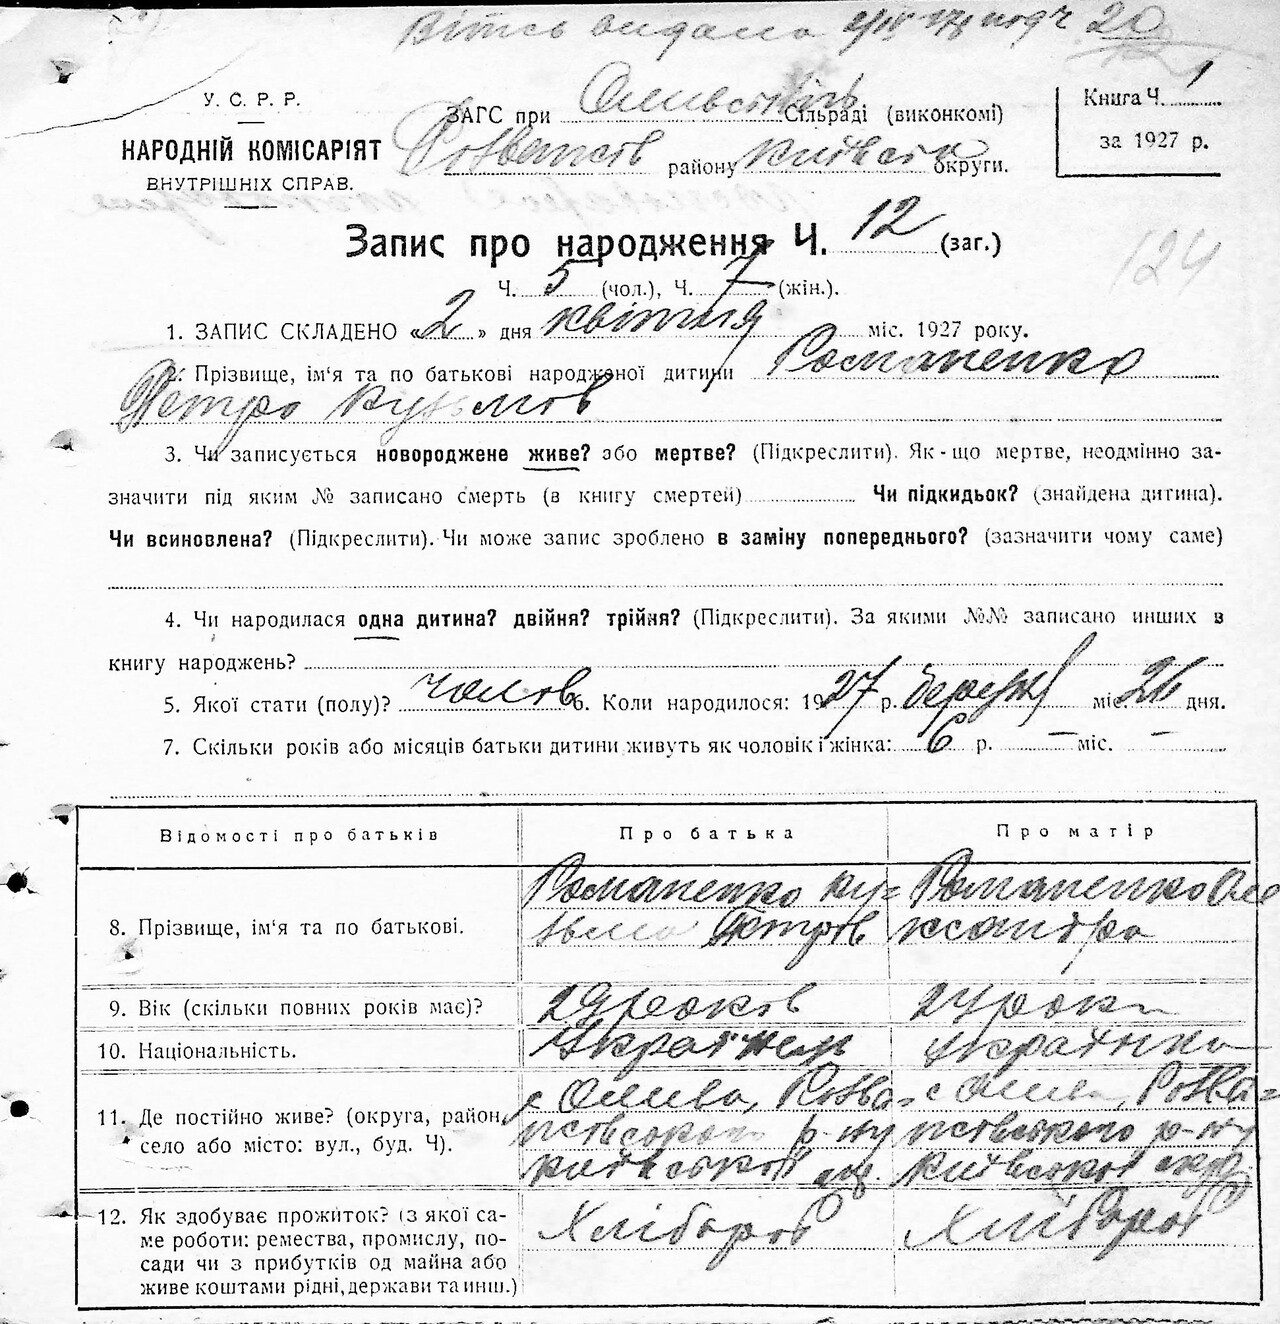 Витяг видано 2/IV 27 р під Ч 20
У. С. Р. Р.
НАРОДНІЙ КОМІСАРІЯТ
ВНУТРІШНІХ СПРАВ.
ЗАГС при Оливській Сільраді (виконкомі)
Розваж­ів району Київськ округи.
Книга Ч. 1
за 1927 р.
Запис про народження Ч. 12 (заг.)
124
Ч. 5 (чол.), Ч. 7 (жін.).
1. ЗАПИС СКЛАДЕНО «2» дня квітня міс. 1927 року.
2. Прізвище, ім'я та по батькові народженої дитини Романенко
Петро Кузьмов
3. Чи записується новороджене живе? або мертве? (Підкреслити). Як-що мертве, неодмінно за-
значити під яким № записано смерть (в книгу смертей) Чи підкидьок? (знайдена дитина).
Чи всиновлена? (Підкреслити). Чи може запис зроблено в заміну попереднього? (зазначити чому саме)
4. Чи народилася одна дитина? двійня? трійня? (Підкреслити). За якими №№ записано инших в
книгу народжень?
5. Якої стати (полу)? чолов 6. Коли народилося: 1927 р. березня міс. 26 дня.
7. Скільки років або місяців батьки дитини живуть як чоловік і жінка: 6 р. — міс. —
Відомості про батьків
Про батька
Про матір
8. Прізвище, ім'я та по батькові.
Романенко Ку=
зьма Петров
Романенко Оле
ксандра
9. Вік (скільки повних років має)?
29 роков
24 роки
10. Національність.
Українець
українка
11. Де постійно живе? (округа, район,
село або місто: вул., буд. Ч).
с Олива, Розва=
київської окр.
с Олива, Розва=
київської окр.
12. Як здобуває прожиток? (з якої са-
ме роботи: ремества, промислу, по-
сади чи з прибутків од майна або
живе коштами рідні, держави та инш.)
Хлібороб
Хлібороб